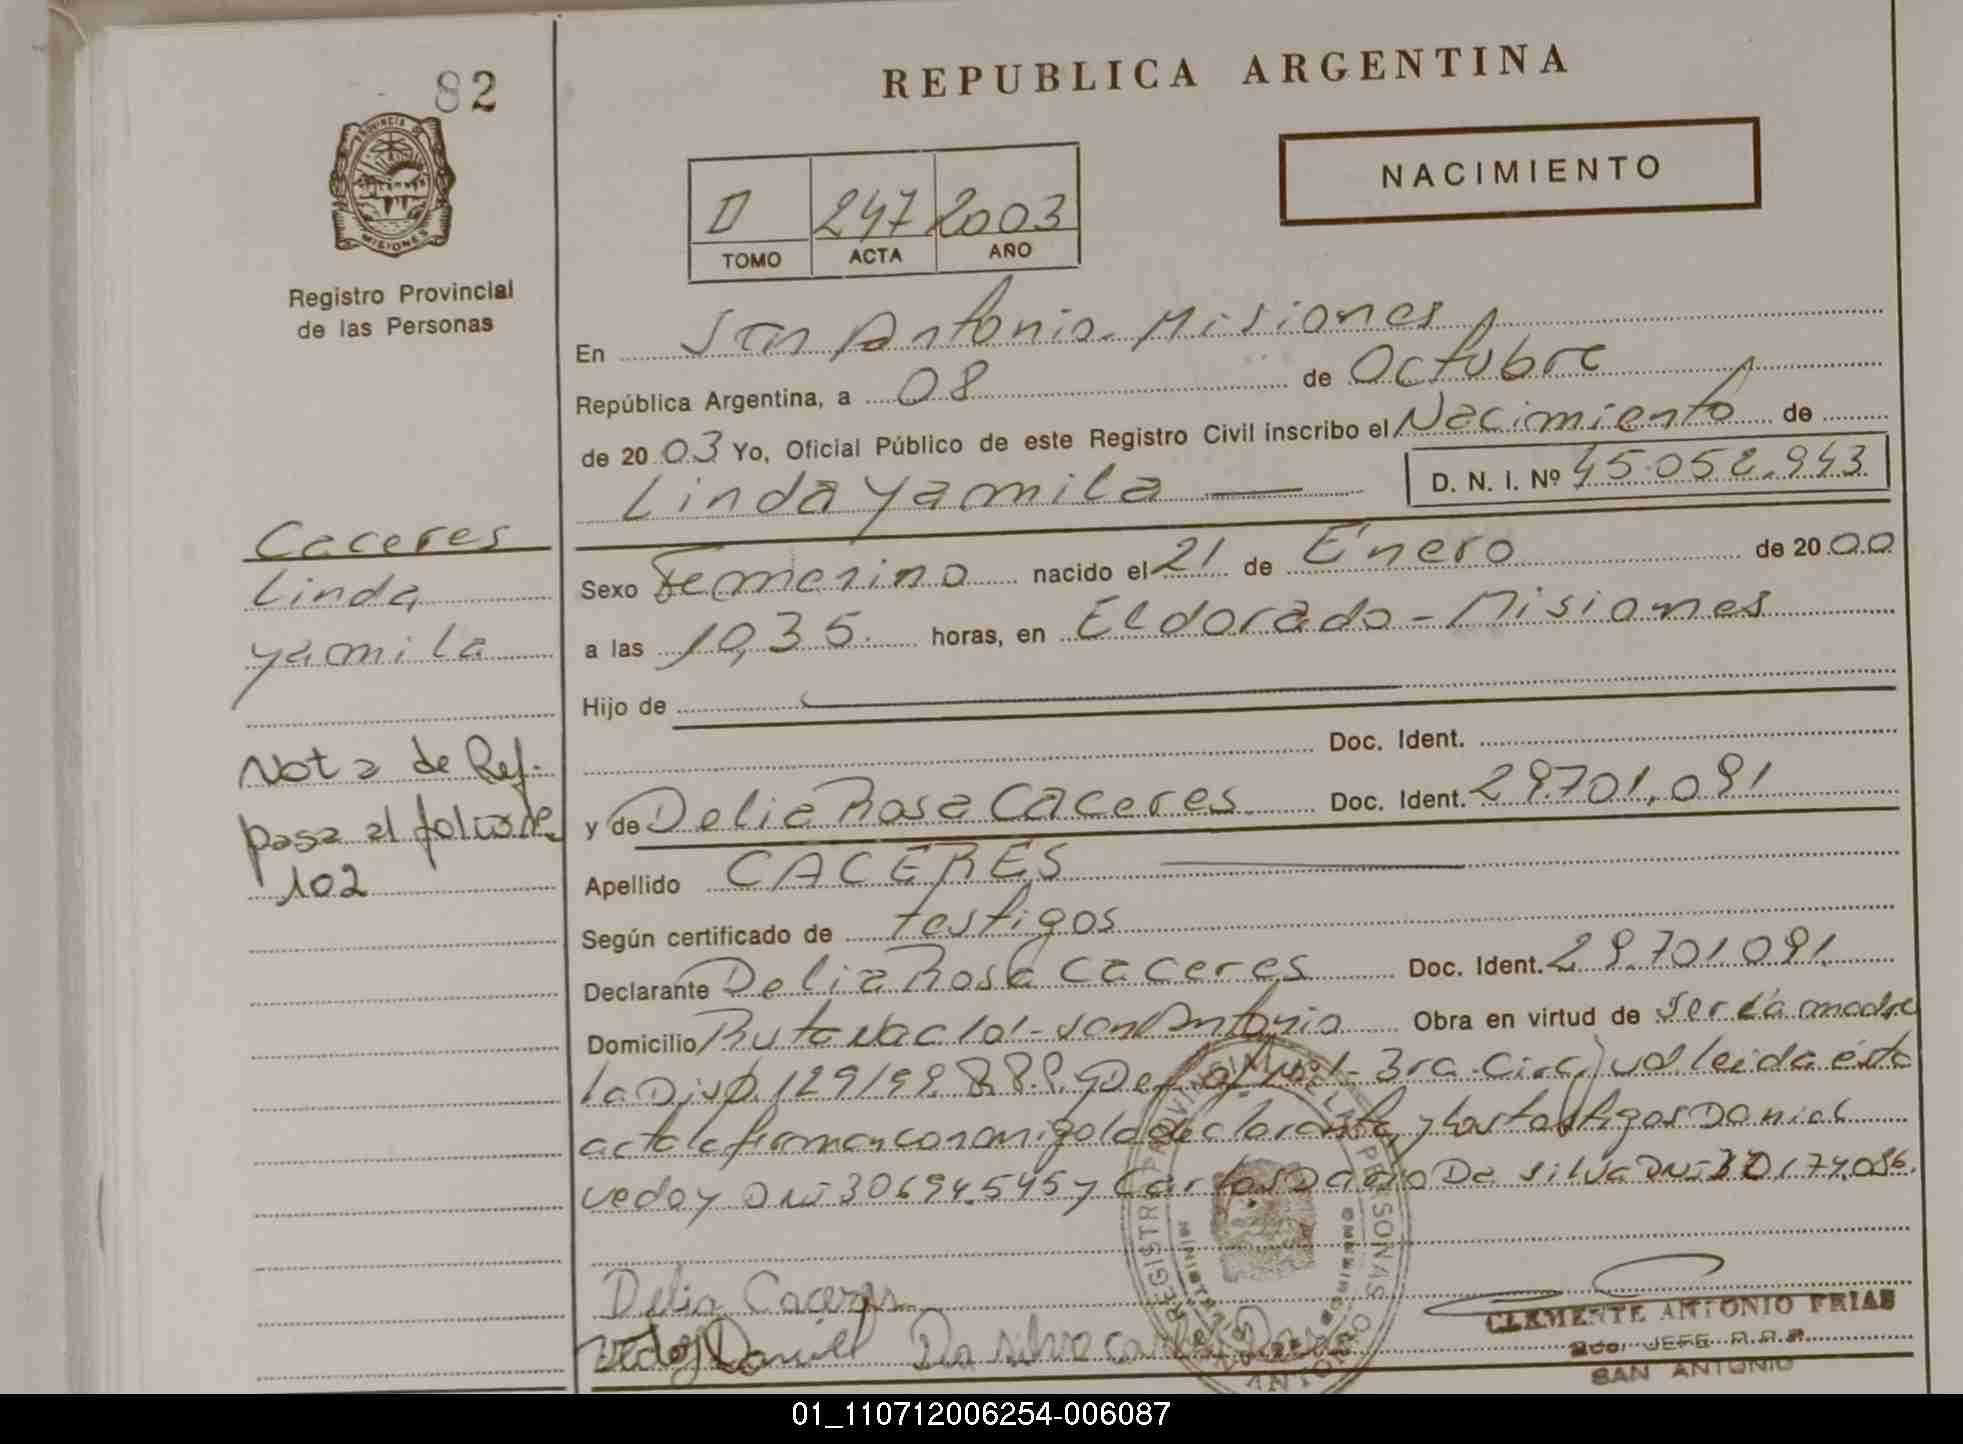 82
PROVINCIA DE
MISIONES
Registro Provincial
de las Personas
REPUBLICA ARGENTINA
NACIMIENTO
II 247 2003
TOMO ACTA AÑO
En San Antonio - Misiones
República Argentina, a 08 de Octubre
de 2003 Yo, Oficial Público de este Registro Civil inscribo el Nacimiento de
Linda Yamila D. N. I. Nº 45.052.943
Caceres
Linda
Yamila
Nota de Ref.
pasa al folio de
102
Sexo Femenino nacido el 21 de Enero de 2000
a las 10,35 horas, en Eldorado - Misiones
Hijo de
Doc. Ident.
y de Delia Rosa Caceres Doc. Ident. 29.701.091
Apellido CACERES
Según certificado de testigos
Declarante Delia Rosa Caceres Doc. Ident. 29.701.091
Domicilio Ruta Nac 101 - San Antonio Obra en virtud de ser la madre
La Disp. 129/99 leida ésta
acta la firman conmigo la declarante, y los testigos Daniel
Vedoy DNI 30694.545 y Carlos Dario Da Silva DNI 30.174.086.
Delia Caceres
Vedoy Daniel Da silva carlos Dario
CLEMENTE ANTONIO FRIAS
2do. JEFE R.P.P.
SAN ANTONIO
01_110712006254-006087